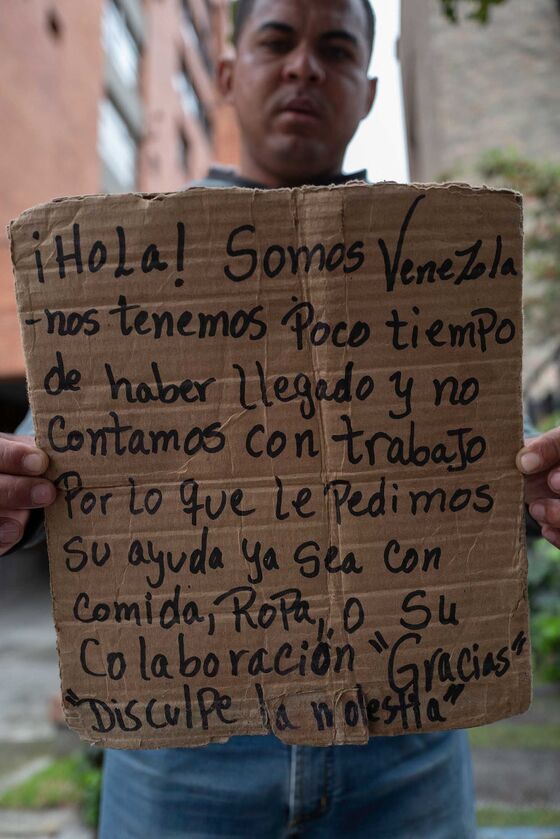 ¡HoLa! Somos Venezola
-nos tenemos Poco tiempo
de haber llegado y no
Contamos con trabajo
Por lo que le Pedimos
su ayuda ya sea con
comida, RoPa, o Su
Colaboración "Gracias"
"Disculpe la molestia"